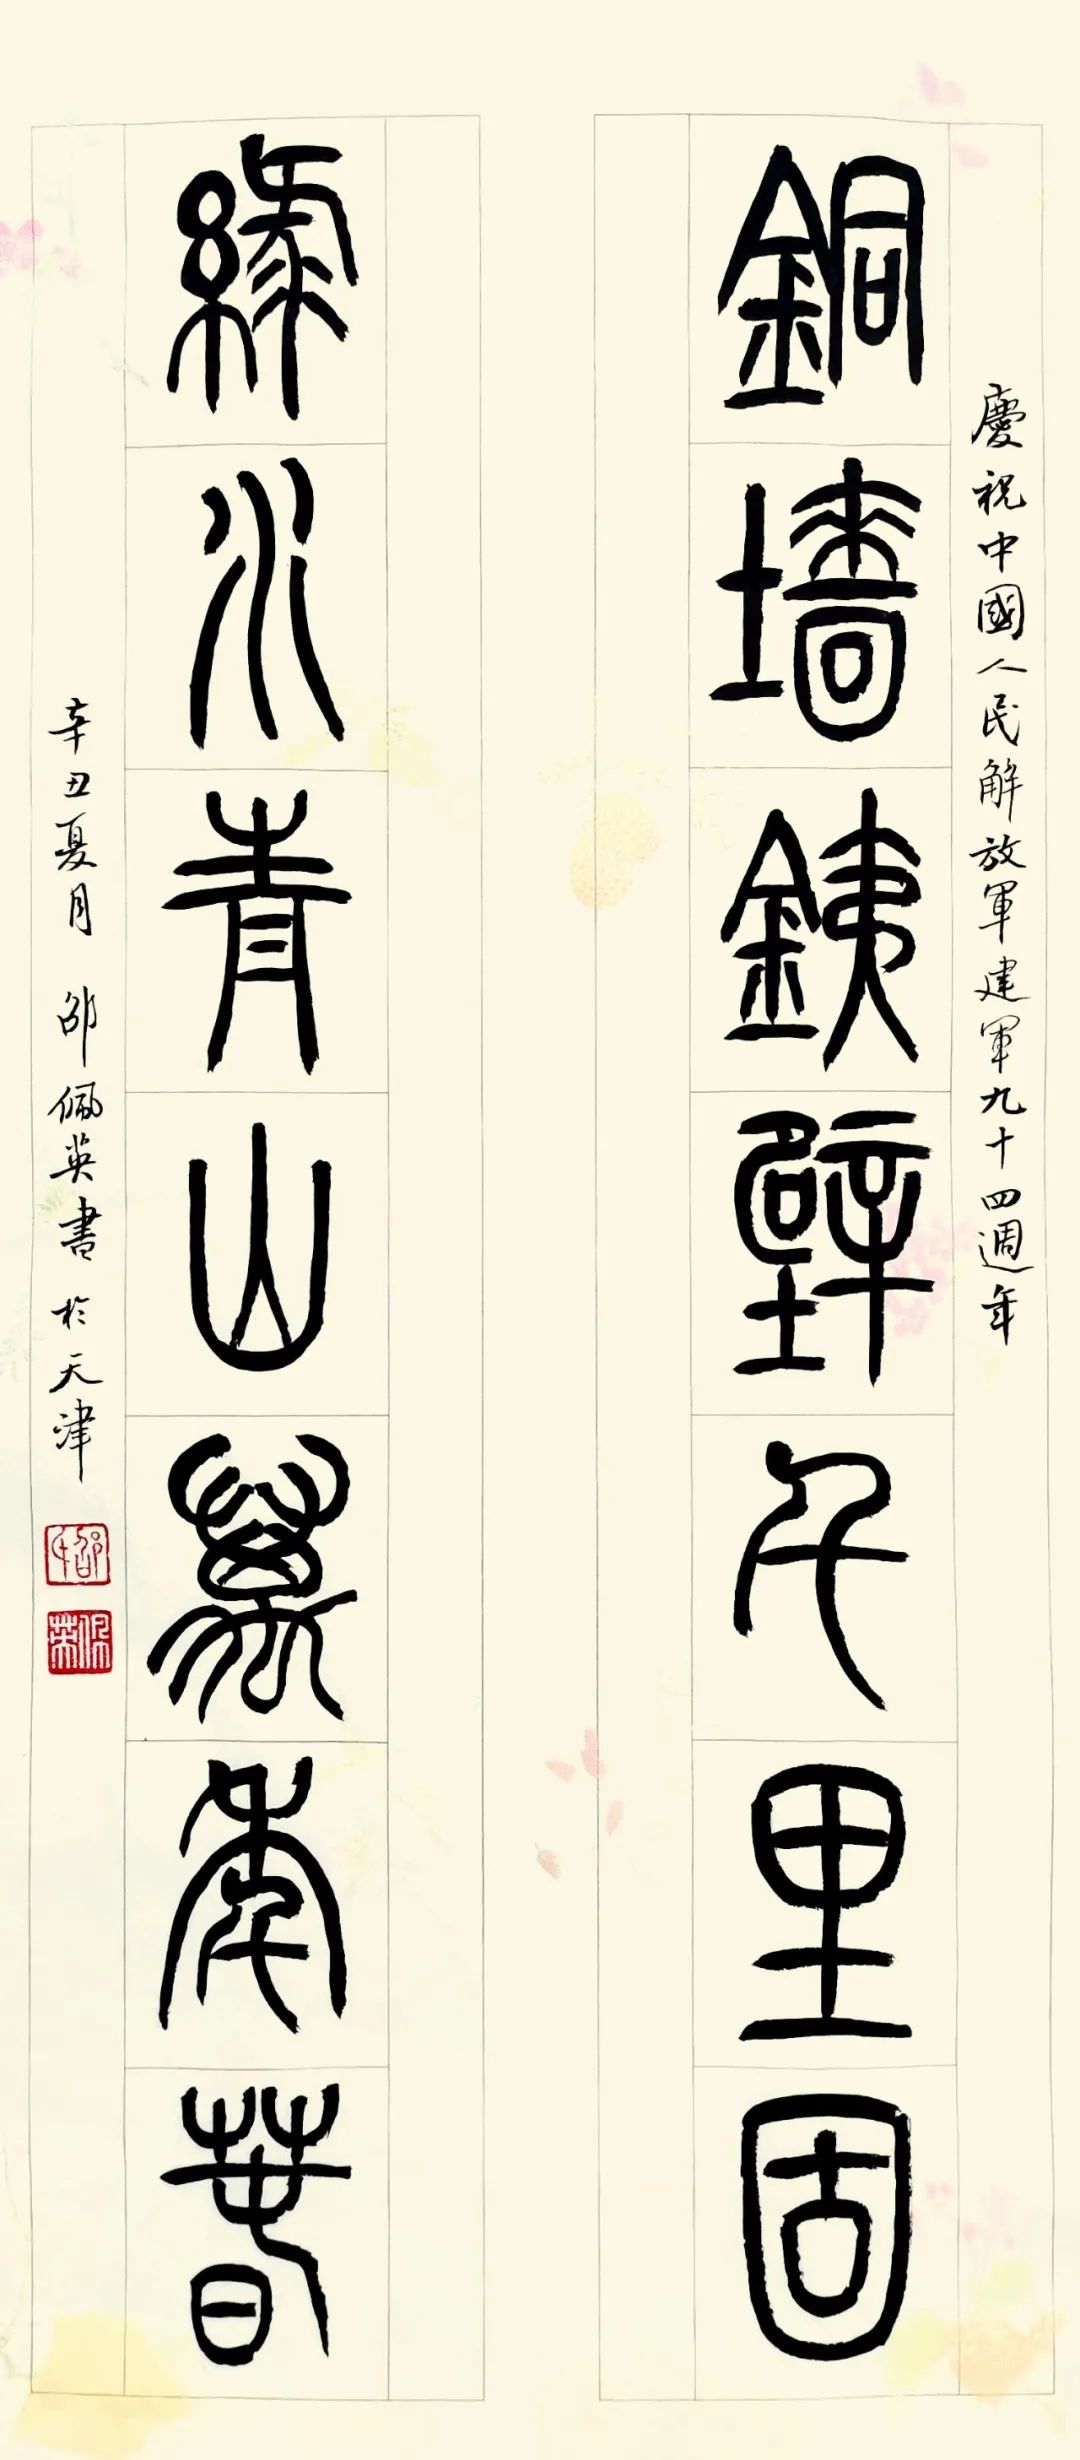 慶祝中國人民解放軍建軍九十四週年
銅墻銕壁千里固
緑水青山萬年春
辛丑夏月 邵佩英書於天津
邵氏
佩英